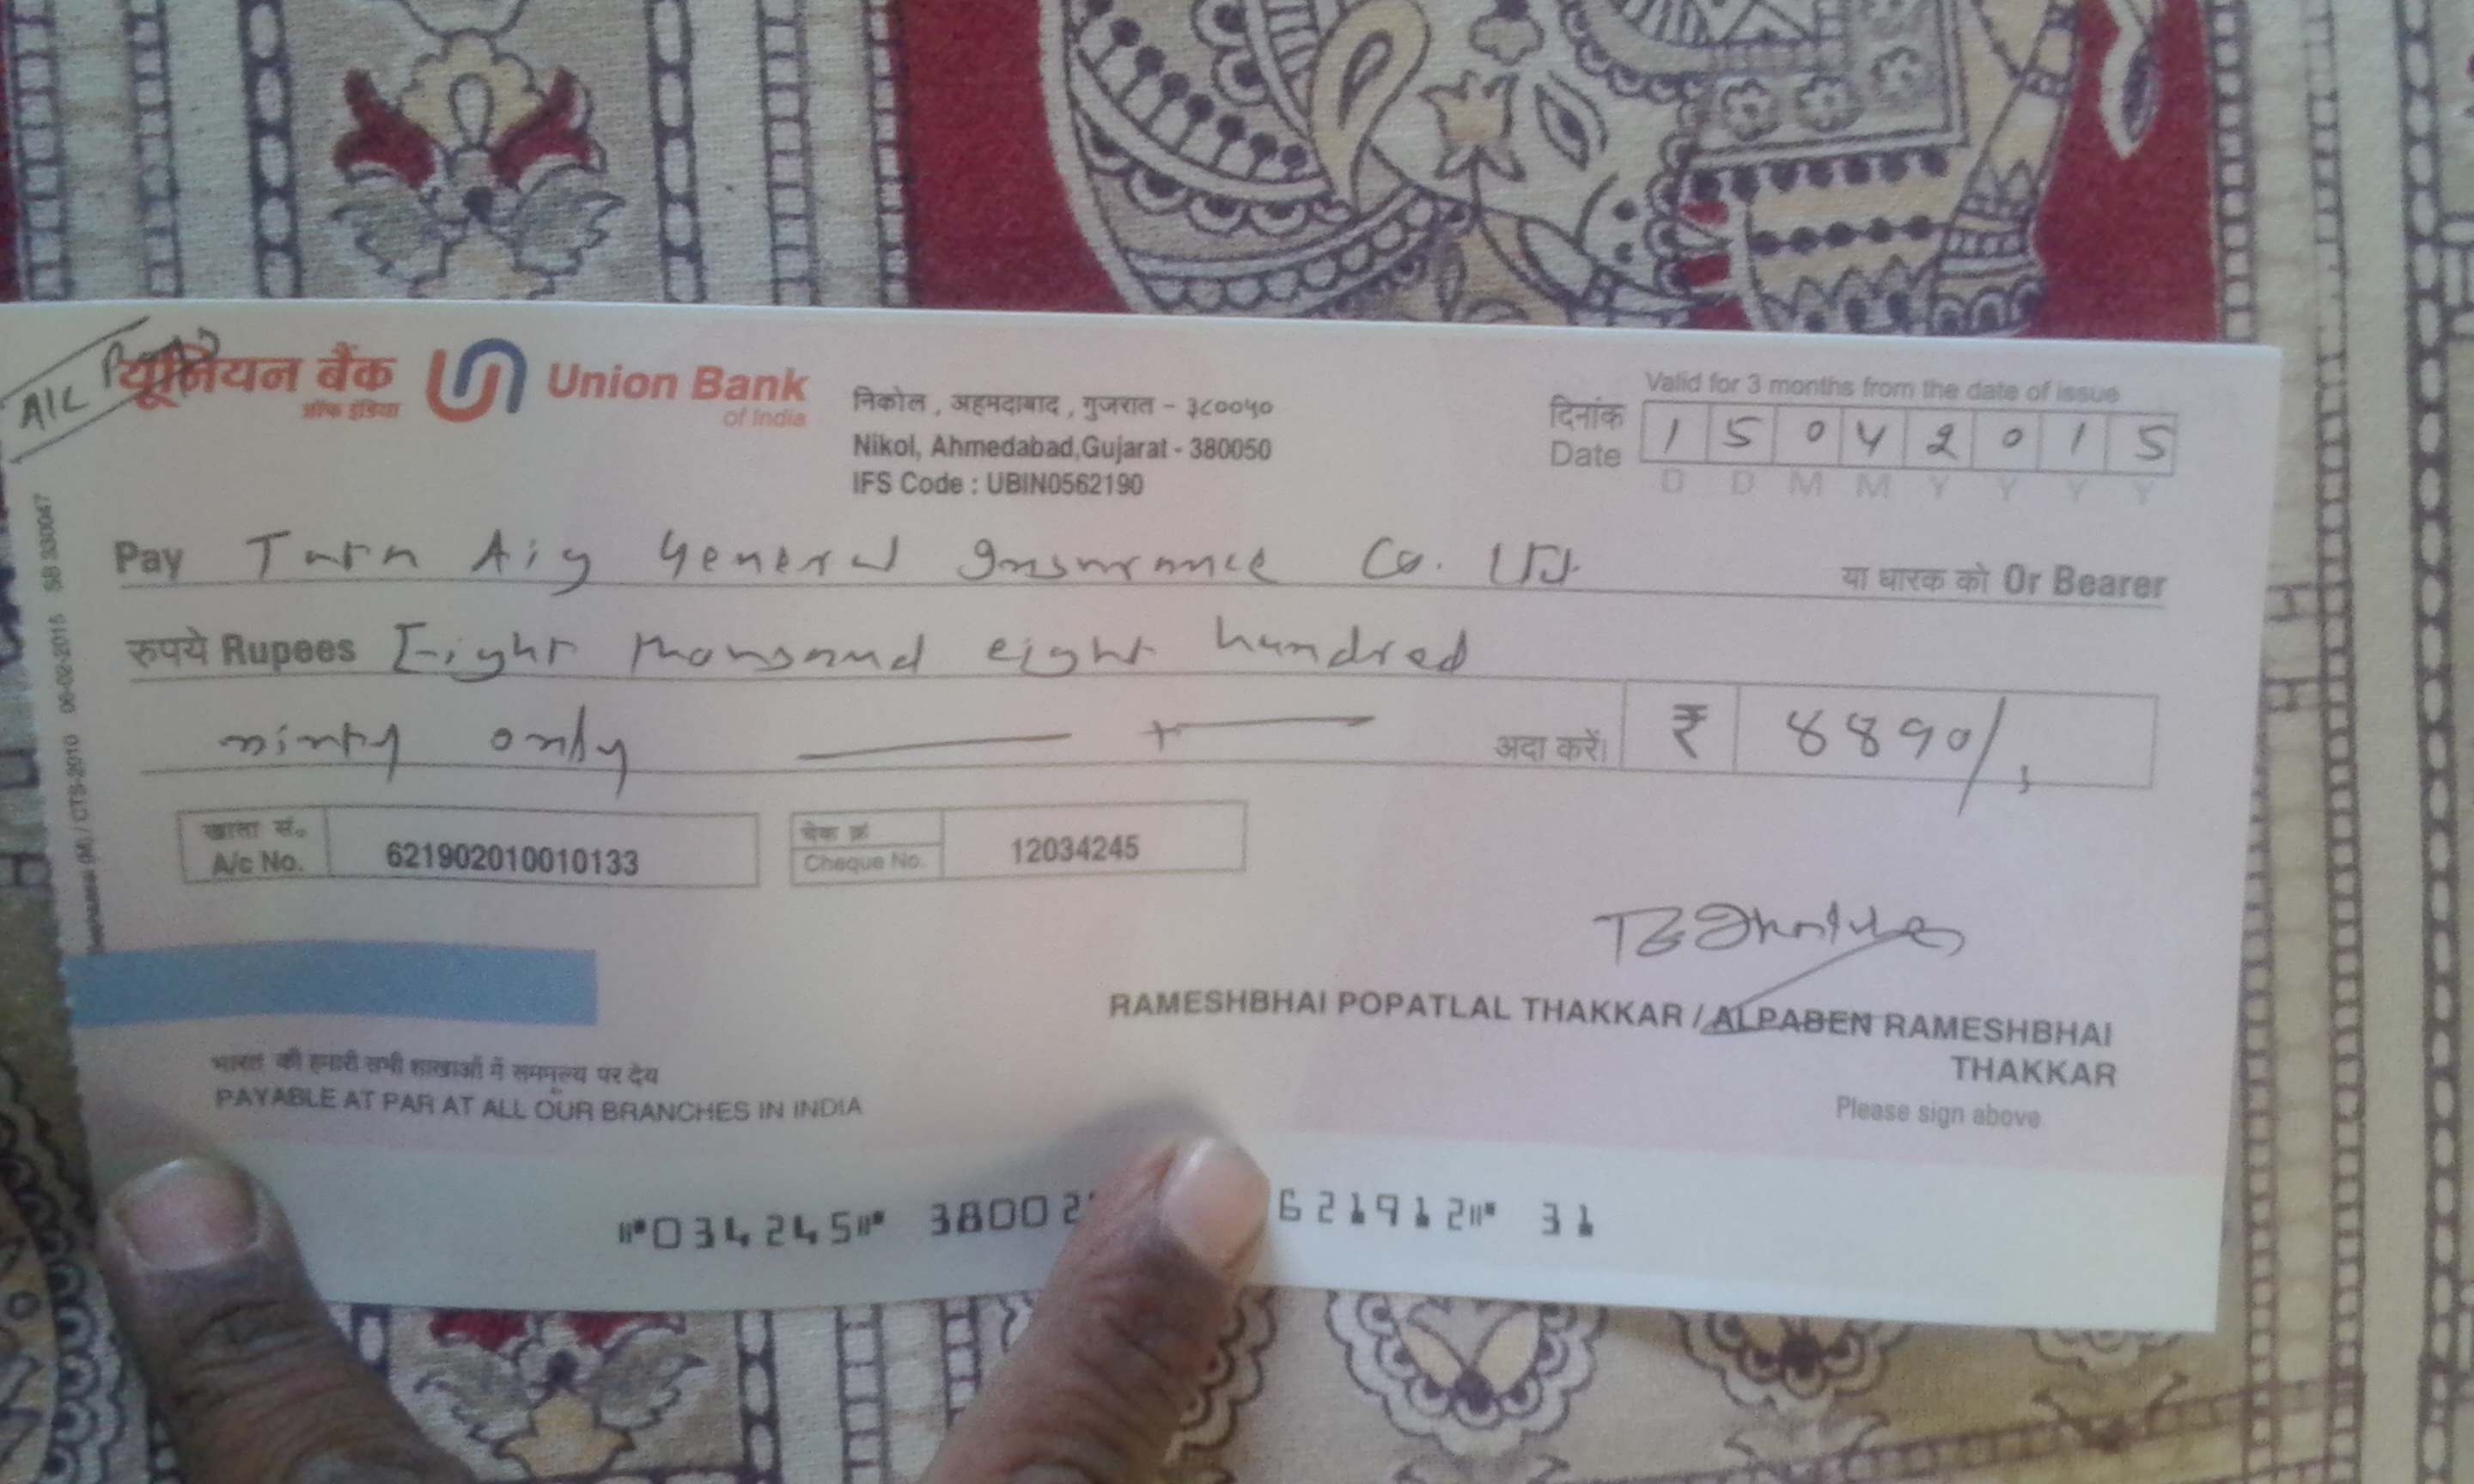 A/C Pay
यूनियन बैंक
ऑफ इंडिया
Union Bank
of India
निकोल, अहमदाबाद, गुजरात - ३८००५०
Nikol, Ahmedabad, Gujarat - 380050
IFS Code : UBIN0562190
Valid for 3 months from the date of issue
दिनांक
Date 15042015
D D M M Y Y Y Y
06-02-2015 SB 330047
(M) / CTS-2010
Pay Tata Aig General Insurance Co. Ltd.
या धारक को Or Bearer
रुपये Rupees Eight thousand eight hundred
ninty only
अदा करें। ₹ 8890/,
खाता सं.
A/c No. 621902010010133
चेक क्रं
Cheque No. 12034245
RAMESHBHAI POPATLAL THAKKAR / ALPABEN RAMESHBHAI
THAKKAR
Please sign above
भारत की हमारी सभी शाखाओं में सममूल्य पर देय
PAYABLE AT PAR AT ALL OUR BRANCHES IN INDIA
⑈034245⑈ 38002 621912⑈ 31